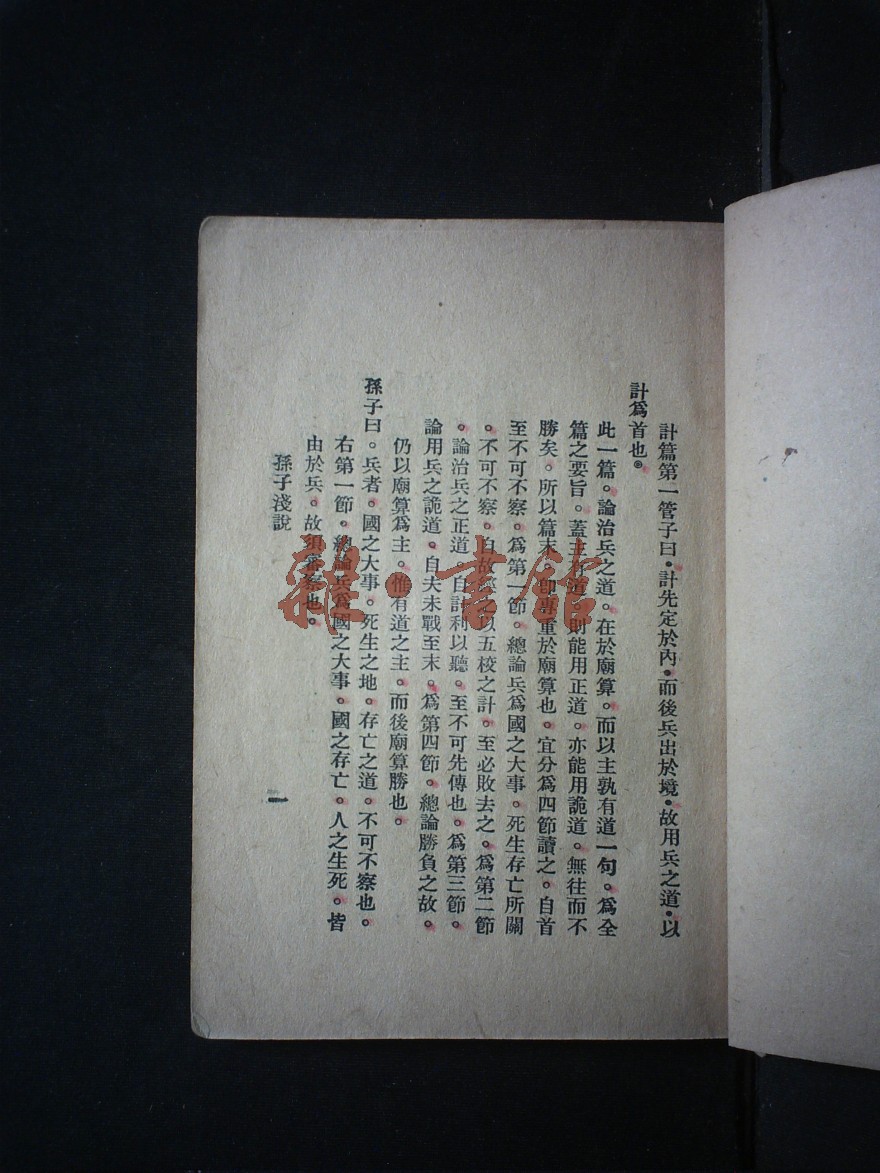 計篇第一管子曰。計先定於內。而後兵出於境。故用兵之道。以
計爲首也。
此一篇。論治兵之道。在於廟算。而以主孰有道一句。爲全
篇之要旨。蓋主有道。則能用正道。亦能用詭道。無往而不
勝矣。所以篇末。卽專重於廟算也。宜分爲四節讀之。自首
至不可不察。爲第一節。總論兵爲國之大事。死生存亡所關
。不可不察。自故經之以五校之計。至必敗去之。爲第二節
。論治兵之正道。自計利以聽。至不可先傳也。爲第三節。
論用兵之詭道。自夫未戰至末。爲第四節。總論勝負之故。
仍以廟算爲主。惟有道之主。而後廟算勝也。
孫子曰。兵者。國之大事。死生之地。存亡之道。不可不察也。
右第一節。總論兵爲國之大事。國之存亡。人之生死。皆
由於兵。故須審察也。
孫子淺說
一
雜·書館